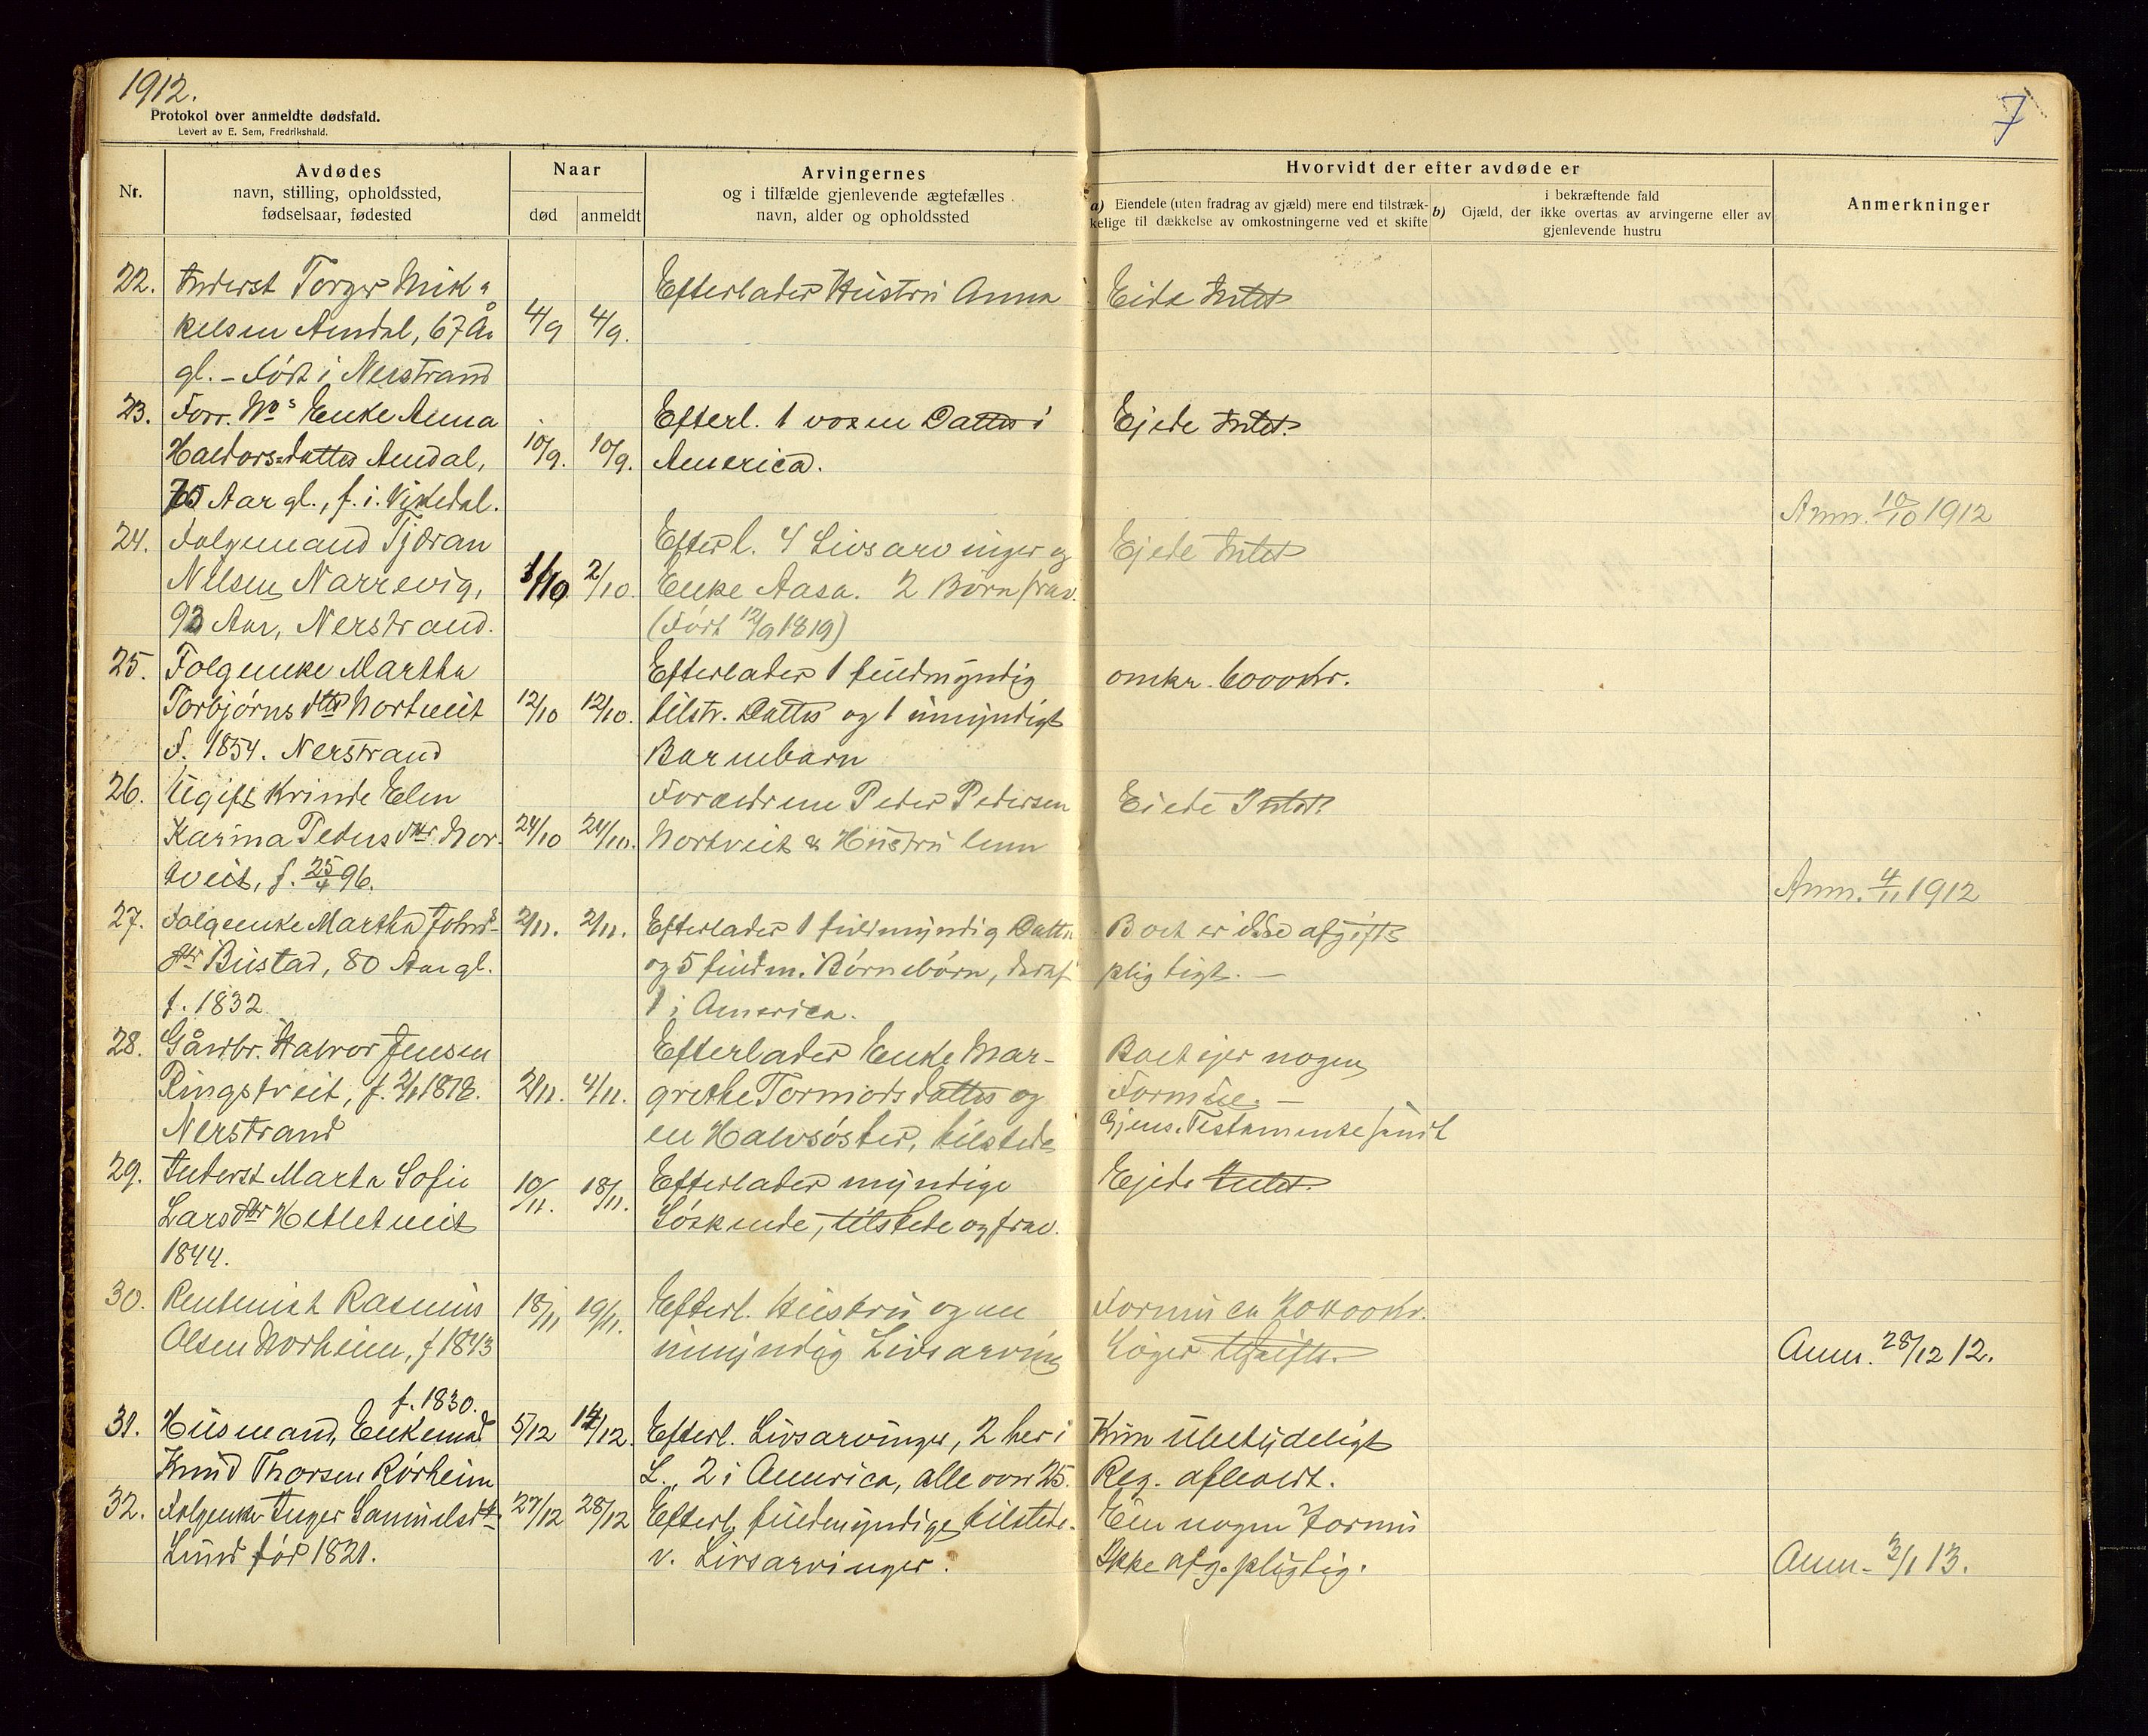 1912.
7
Protokol over anmeldte dødsfald.
Levert av E. Sem, Fredrikshald.
Nr.
Avdødes
navn, stilling, opholdssted,
fødselsaar, fødested
Naar
død
anmeldt
Arvingernes
og i tilfælde gjenlevende ægtefælles
navn, alder og opholdssted
Hvorvidt der efter avdøde er
a) Eiendele (uten fradrag av gjæld) mere end tilstræk-
kelige til dækkelse av omkostningerne ved et skifte
i bekræftende fald
b) Gjæld, der ikke overtas av arvingerne eller av
gjenlevende hustru
Anmerkninger
22. Inderst Torger Mik-
kelsen Amdal, 67 År
gl. - Født i Nerstrand
4/9 4/9.
Efterlader Hustru Anna
Eide Intet
23. Forr. No 5 Enke Anna
Haldors=datter Amdal,
75 Aar gl., f. i. Vikedal.
10/9. 10/9.
Efterl. 1 voxen Datter i
America.
Ejede Intet.
Ann. 10/10 1912
24. Folgemand Tjøran
Nilsen Narrevig,
93 Aar, Nerstrand.
1/10. 2/10.
Efterl. 4 Livsarvinger og
Enke Aasa. 2 Børn frav.
(Født 12/9 1819)
Ejede Intet
25. Folgenke Martha
Torbjørns dtr Nortveit
f. 1854. Nerstrand
12/10 12/10.
Efterlader 1 fuldmyndig
tilstr. Datter og 1 umyndigt
Barnebarn
omkr. 6000 Kr.
26. Ugift Kvinde Elen
Karina Peders dtr. Nor-
tveit, f. 25/4 96.
24/10 24/10.
Forældrene Peder Pedersen
Nortveit & Hustru
Eiede Intet.
Ann. 4/11 1912
27. Folgenke Martha Johns-
dtr Bustad, 80 Aar gl.
f. 1832
2/11. 2/11.
Efterlader 1 fuldmyndig Datter
og 5 fuldm. Børnebørn, deraf
1 i America.
Boet er ikke afgifts
pligtigt. -
28. Gårdbr. Halvor Jensen
Ringstveit, f. 1818.
Nerstrand
2/11. 4/11.
Efterlader Enke Mar-
grethe Tormodsdatter og
en Halvsøster, tilstede
Boet ejer nogen
Formue. -
Gjens. Testamente sendt
29. Inderst Marta Sofie
Lars dtr Hetletveit
1844.
10/11. 18/11.
Efterlader myndige
Søskende, tilstede og frav.
Ejede Intet.
30. Rentenist Rasmus
Olsen Norheim, f 1843
18/11 19/11.
Efterl. Hustru og en
umyndig Livsarving
Formu ca Kr.
Ann. 28/12 12.
f. 1830.
31. Husmand, Enkemad
Knud Thorsen Rørheim
5/12 14/12.
Efterl. Livsarvinger, 2 her i
L., 2 i America, alle over 25.
Kun ubetydeligt
Reg. afholdt.
32. Folgenke Inger Samuelsdt
Lund fød 1821.
27/12 28/12
Efterl. fuldmyndige tilstede-
v. Livsarvinger.
nogen Formu
Ikke afg. pligtig.
Ann. 3/1 13.